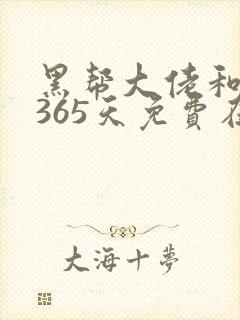 黑帮大佬和
365天免費在
大海十夢